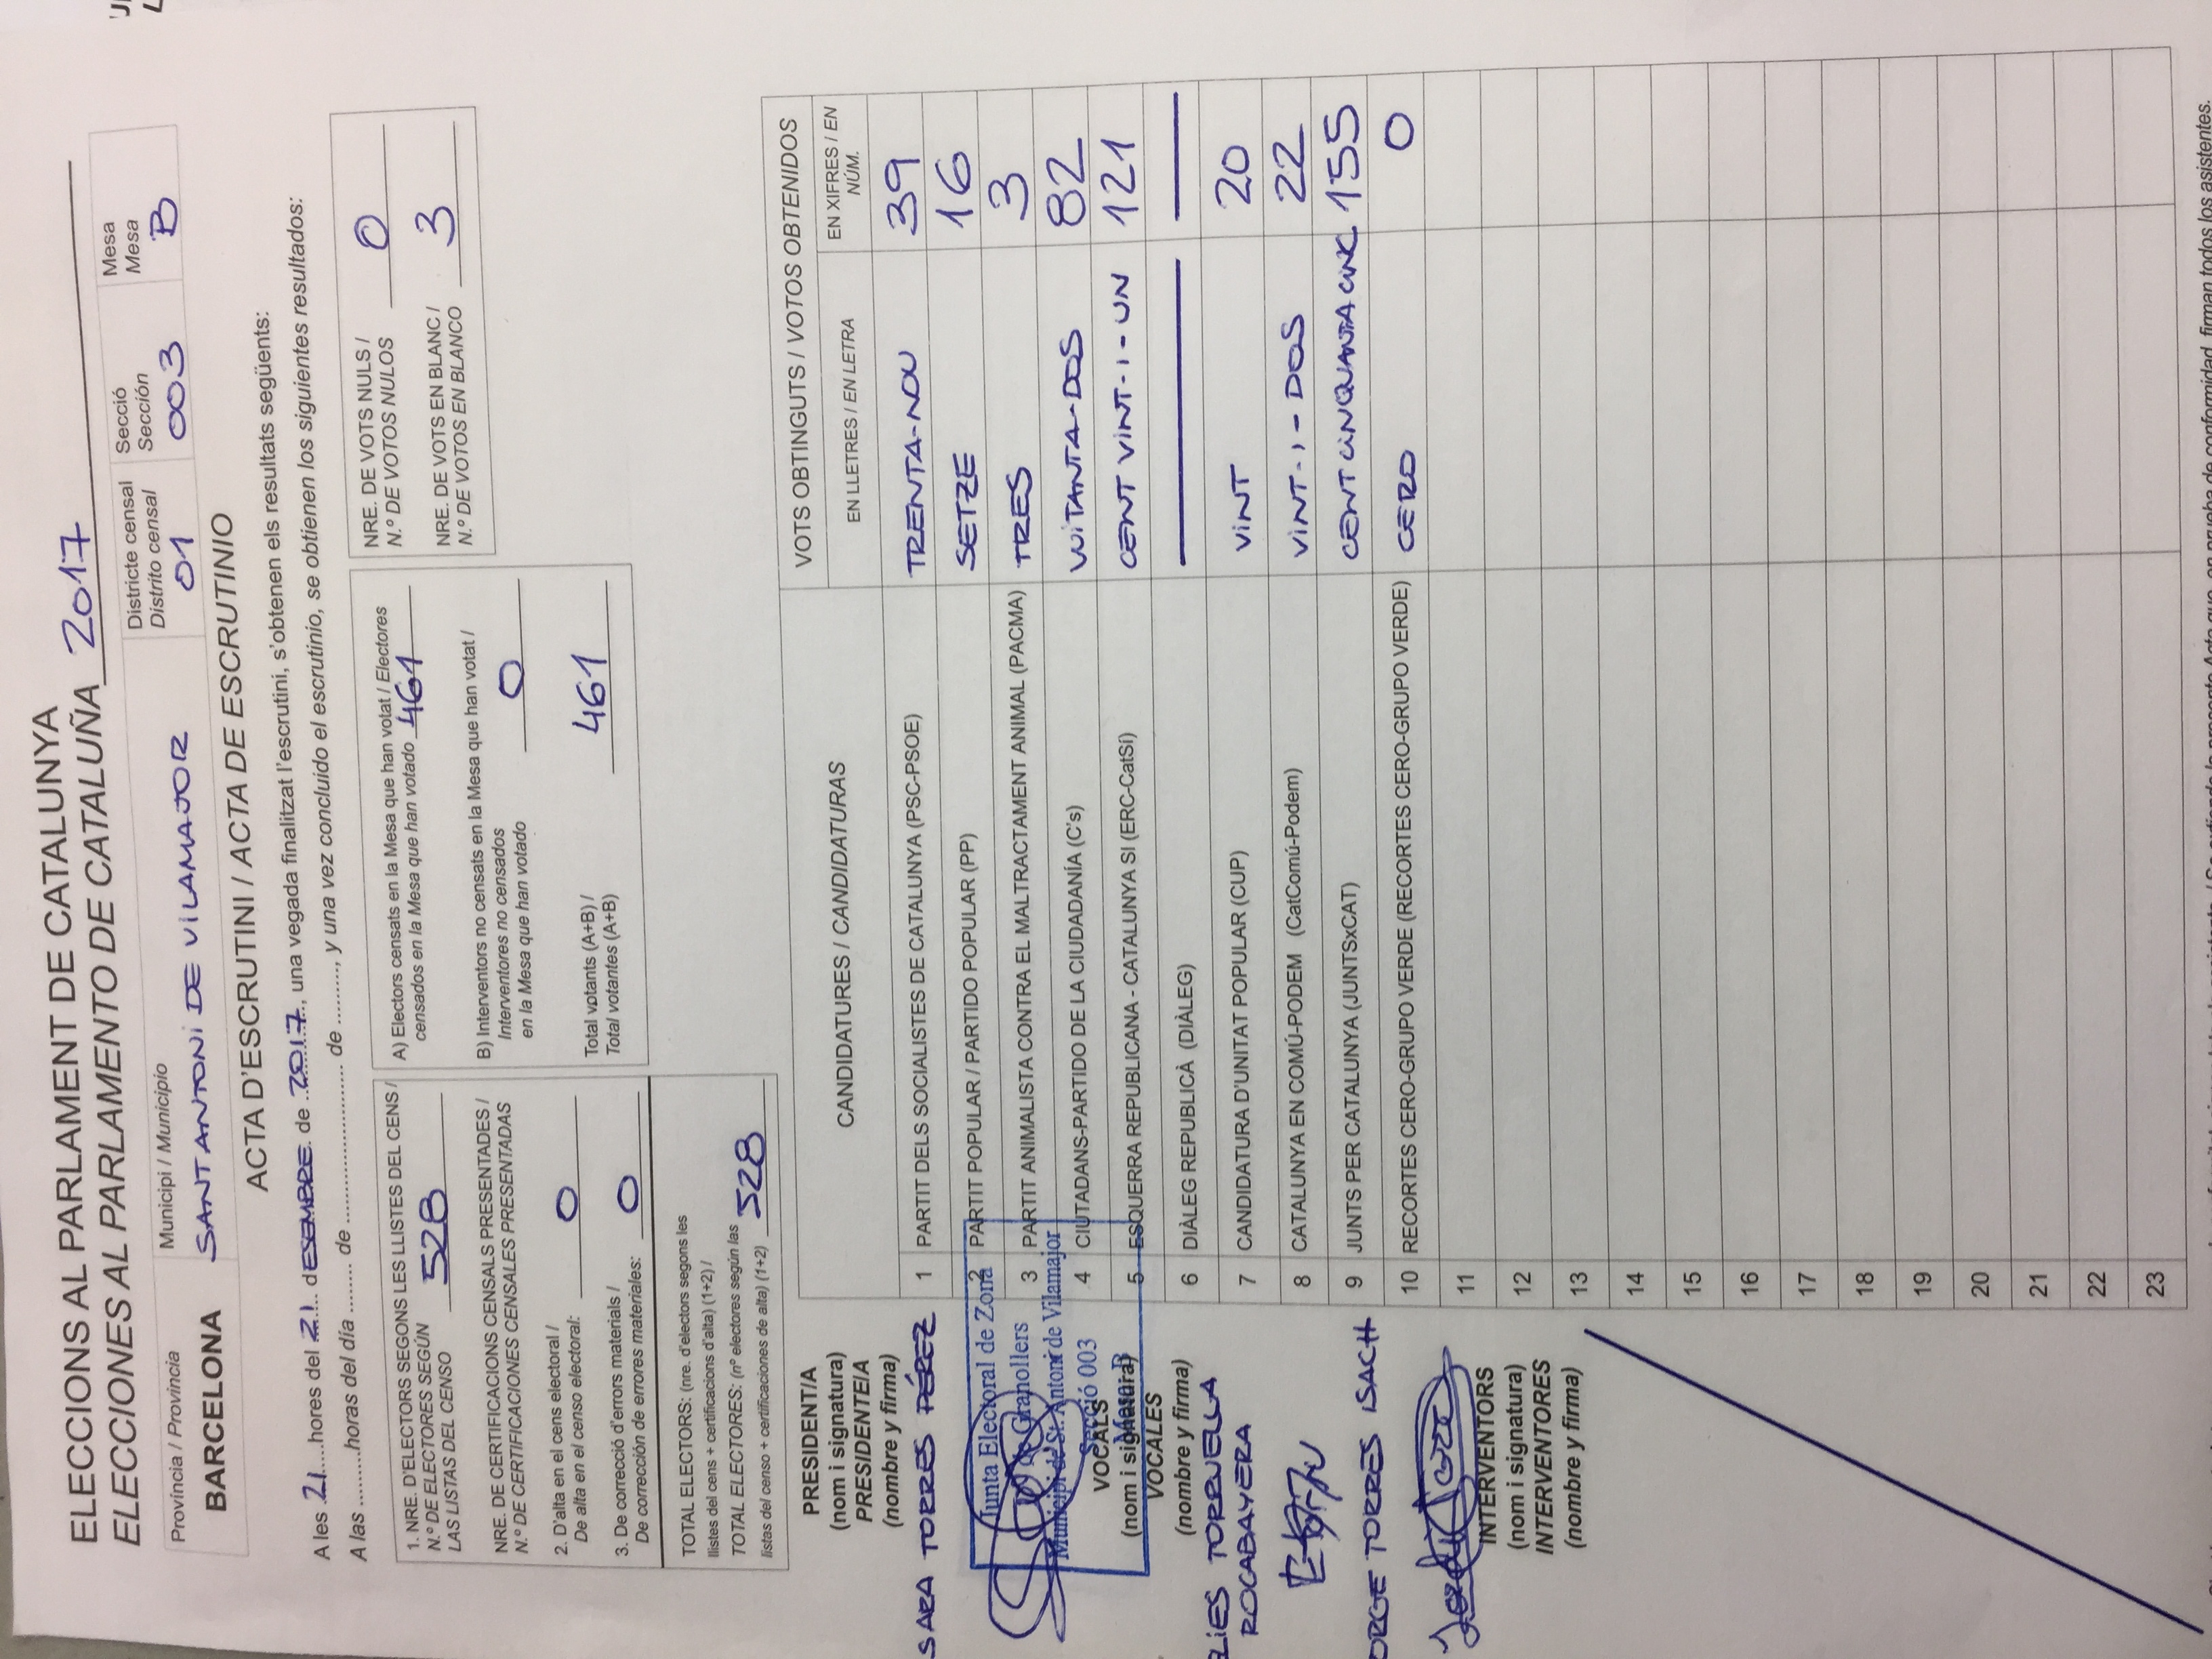 ELECCIONS AL PARLAMENT DE CATALUNYA
ELECCIONES AL PARLAMENTO DE CATALUÑA 2017
Província / Provincia
BARCELONA
Municipi / Municipio
SANT ANTONI DE VILAMAJOR
Districte censal
Distrito censal
01
Secció
Sección
003
Mesa
Mesa
B
ACTA D'ESCRUTINI / ACTA DE ESCRUTINIO
A les 21 hores del 21 dESEMBRE de 2017, una vegada finalitzat l'escrutini, s'obtenen els resultats següents:
A las .........horas del día ........ de ............................ de ........., y una vez concluido el escrutinio, se obtienen los siguientes resultados:
1. NRE. D'ELECTORS SEGONS LES LLISTES DEL CENS /
N.º DE ELECTORES SEGÚN
LAS LISTAS DEL CENSO 528
NRE. DE CERTIFICACIONS CENSALS PRESENTADES /
N.º DE CERTIFICACIONES CENSALES PRESENTADAS
2. D'alta en el cens electoral /
De alta en el censo electoral: 0
3. De correcció d'errors materials /
De corrección de errores materiales: 0
TOTAL ELECTORS: (nre. d'electors segons les
llistes del cens + certificacions d'alta) (1+2) /
TOTAL ELECTORES: (nº electores según las
listas del censo + certificaciones de alta) (1+2) 528
A) Electors censats en la Mesa que han votat / Electores
censados en la Mesa que han votado 461
B) Interventors no censats en la Mesa que han votat /
Interventores no censados
en la Mesa que han votado 0
Total votants (A+B) /
Total votantes (A+B) 461
NRE. DE VOTS NULS /
N.º DE VOTOS NULOS 0
NRE. DE VOTS EN BLANC /
N.º DE VOTOS EN BLANCO 3
PRESIDENT/A
(nom i signatura)
PRESIDENTE/A
(nombre y firma)
SARA TORRES PÉREZ
Junta Electoral de Zona
de Granollers
Municipi de St. Antoni de Vilamajor
Secció 003
Mesa: B
VOCALS
(nom i signatura)
VOCALES
(nombre y firma)
ELIES TORRUELLA
ROCABAYERA
ORGE TORRES ISACH
INTERVENTORS
(nom i signatura)
INTERVENTORES
(nombre y firma)
CANDIDATURES / CANDIDATURAS
VOTS OBTINGUTS / VOTOS OBTENIDOS
EN LLETRES / EN LETRA
EN XIFRES / EN
NÚM.
1 PARTIT DELS SOCIALISTES DE CATALUNYA (PSC-PSOE) TRENTA-NOU 39
2 PARTIT POPULAR / PARTIDO POPULAR (PP) SETZE 16
3 PARTIT ANIMALISTA CONTRA EL MALTRACTAMENT ANIMAL (PACMA) TRES 3
4 CIUTADANS-PARTIDO DE LA CIUDADANÍA (C's) VUITANTA-DOS 82
5 ESQUERRA REPUBLICANA - CATALUNYA SI (ERC-CatSí) CENT VINT-I-UN 121
6 DIÀLEG REPUBLICÀ (DIÀLEG)
7 CANDIDATURA D'UNITAT POPULAR (CUP) VINT 20
8 CATALUNYA EN COMÚ-PODEM (CatComú-Podem) VINT-I-DOS 22
9 JUNTS PER CATALUNYA (JUNTSxCAT) CENT CINQUANTA CINC 155
10 RECORTES CERO-GRUPO VERDE (RECORTES CERO-GRUPO VERDE) CERO 0
11
12
13
14
15
16
17
18
19
20
21
22
23
en prueba de conformidad, firman todos los asistentes.